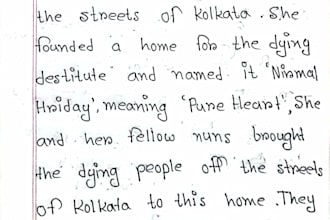 the streets of Kolkata. She
founded a home for the dying
destitute and named it 'Nirmal
Hriday', meaning 'Pure Heart', She
and her fellow nuns brought
the dying people off the streets
of Kolkata to this home. They